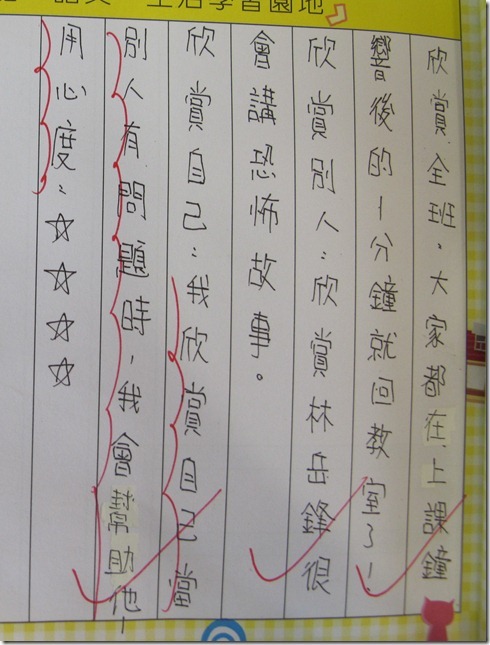 生活學習園地
欣賞全班。大家都在上課鐘
響後的1分鐘就回教室了！
欣賞別人：欣賞林岳鋒很
會講恐怖故事。
欣賞自己：我欣賞自己當
別人有問題時，我會幫助他！
用心度：☆☆☆☆